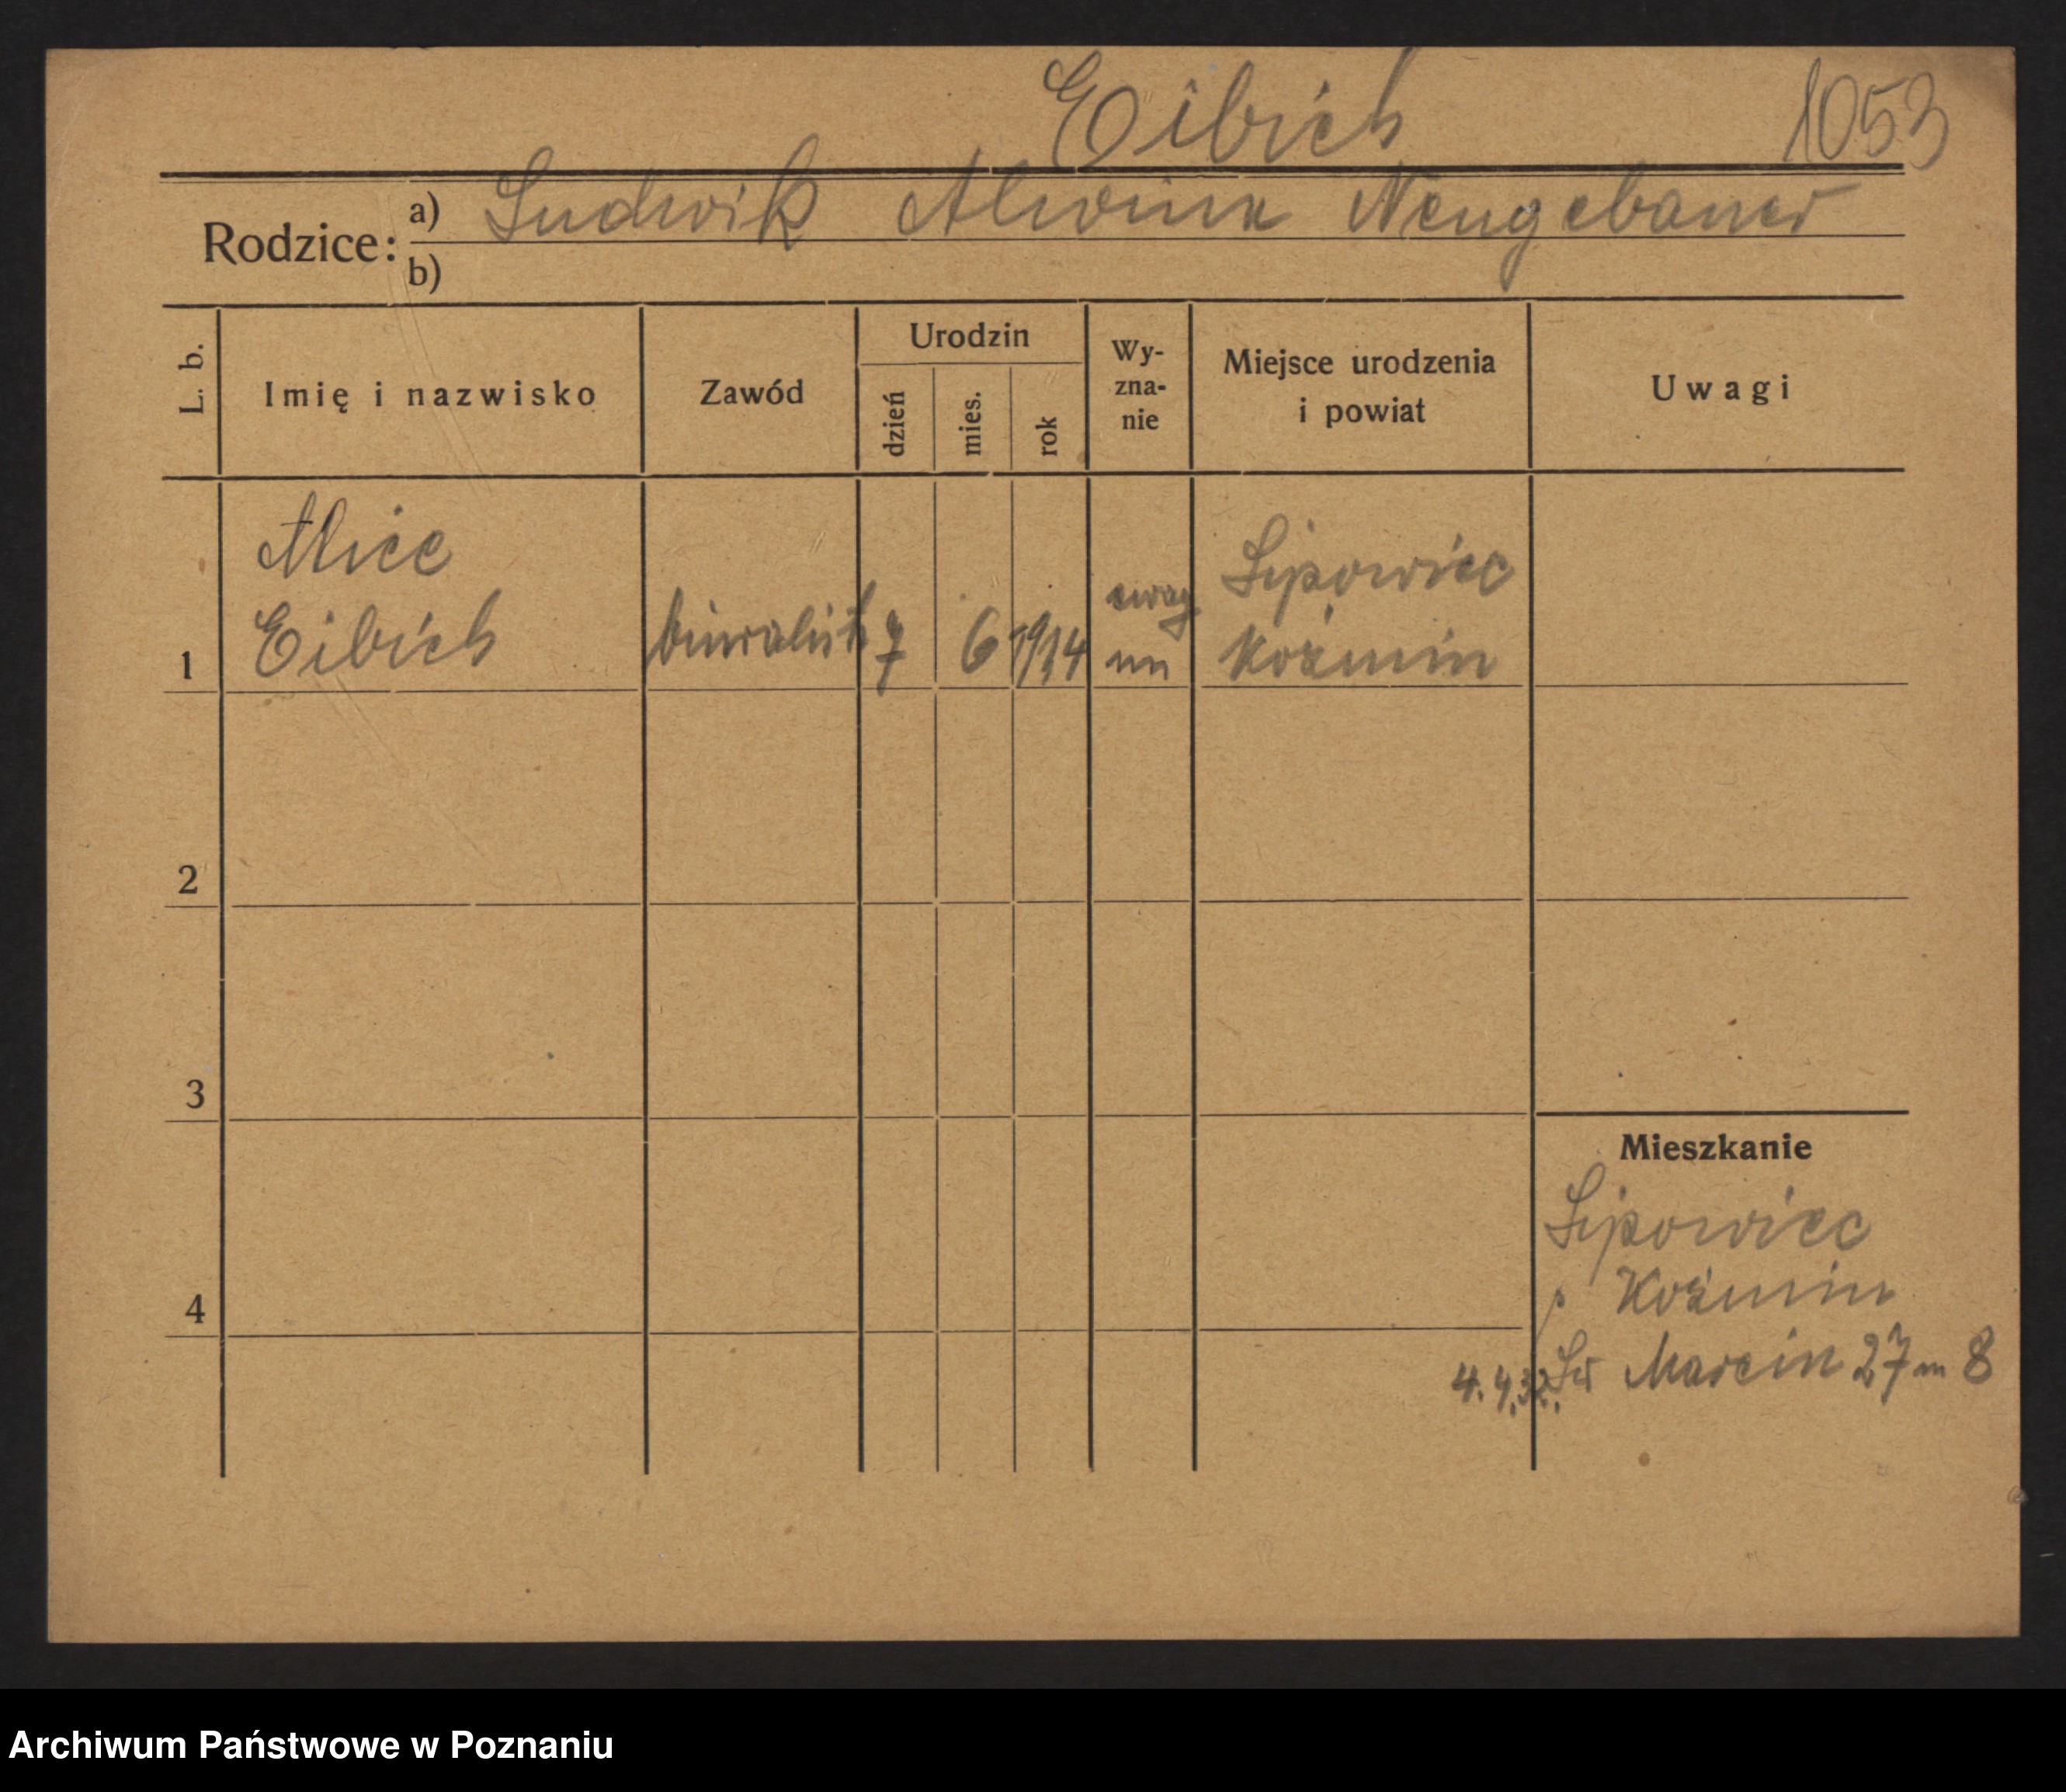 Eibich 1053
Rodzice: a) Ludwik Alwina Neugebauer
b)
L. b. Imię i nazwisko Zawód Urodzin dzień mies. rok Wy-zna-nie Miejsce urodzenia i powiat Uwagi
Alice ewag Lipowiec
1 Eibich biuralistk 7 6 1914 nn Koźmin
2
3
Mieszkanie
Lipowiec
4 p Koźmin
4.4.32. Św Marcin 27 m 8
Archiwum Państwowe w Poznaniu